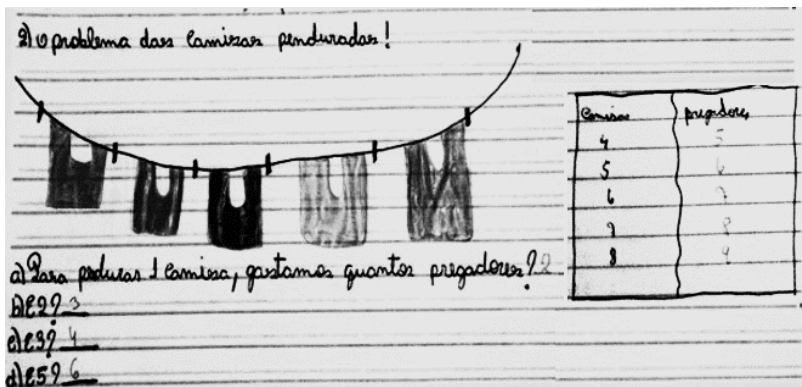 2) O problema das camisas penduradas!
camisas pregadores
4 5
5 6
6 7
7 8
8 9
a) Para penduras 1 camisa, gastamos quantos pregadores? 2
b) E 2? 3
c) E 3? 4
d) E 5? 6